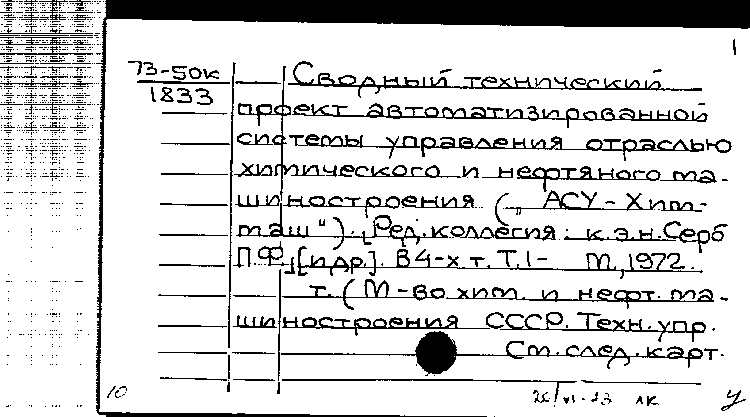 1
73-50к
1833
Сводный технический
проект автоматизированной
системы управления отраслью
химического и нефтяного ма-
шиностроения („АСУ-Хим-
маш"). [Ред. коллегия: к.э.н. Серб
П.Ф.] [и др.]. В 4-х т. Т. 1- М., 1972.
т. (М-во хим. и нефт. ма-
шиностроения СССР. Техн. упр.
См. след. карт.
10
лк
у